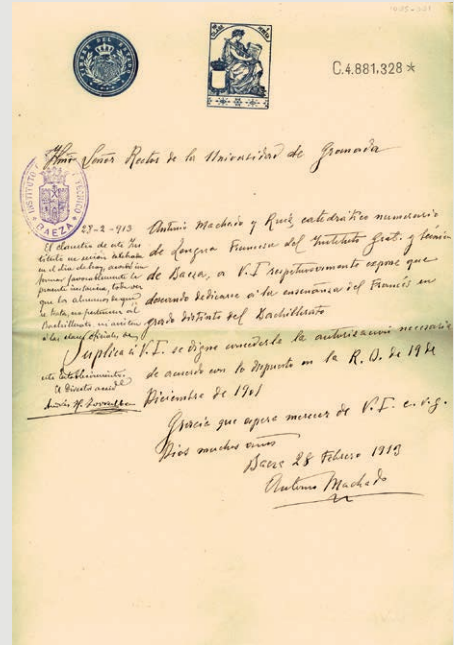 TIMBRE DEL ESTADO
C.4.881,328 *
Ilmo Señor Rector de la Universidad de Granada
INSTITUTO
TECNICO
BAEZA
28-2-913
El claustro de este Ins
tituto en sesión celebrada
en el día de hoy, acordó in
formar favorablemente la
presente instancia, toda vez
que los alumnos
a las clases oficiales de
este establecimiento.
El Director accid
Antonio Machado y Ruiz catedrático numerario
de Lengua Francesa del Instituto Gral. y técnico
de Baeza, a V.I. respetuosamente expone que
deseando dedicarse á la enseñanza del Francés en
grado distinto del Bachillerato
Suplica á V.I. se digne concederle la autorización necesaria
de acuerdo con lo dispuesto en la R. O. de
Diciembre de 1901
Gracia que espera merecer de V. I. c. v. g.
Dios muchos años
Baeza 28 Febrero 1913
Antonio Machado